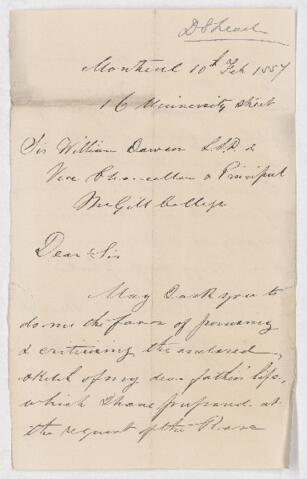 D S Leach
Montreal 10th Feb 1887
16 University Street
Sir William Dawson LL.D &
Vice Chancellor & Principal
McGill College
Dear Sir
May I ask you to
do me the favor of perusing
& criticising the enclosed
sketch of my dear father's life,
which I have prepared at
the request of the